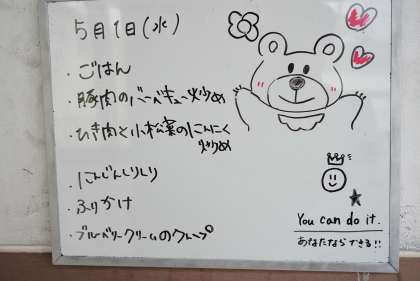 5月1日(水)
・ごはん
・豚肉のバーベキュー炒め
・ひき肉と小松菜のにんにく
炒め
・にんじんしりしり
・ふりかけ
・ブルーベリークリームのクレープ
You can do it.
あなたならできる!!